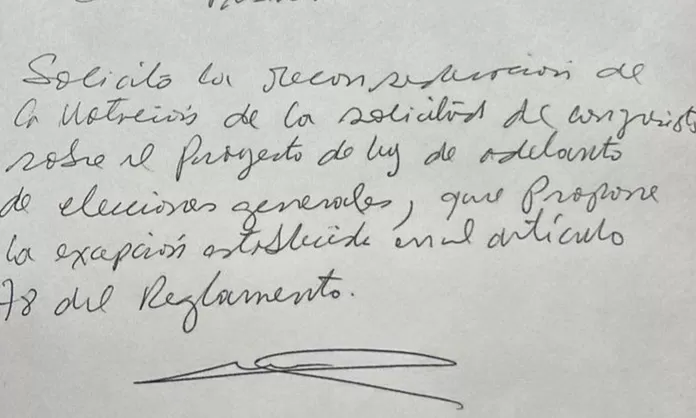 Solicito la reconsideración de
la Votación de la solicitud de
sobre el Proyecto de ley de adelanto
de elecciones generales, que propone
la exepción establecida en el artículo
78 del Reglamento.